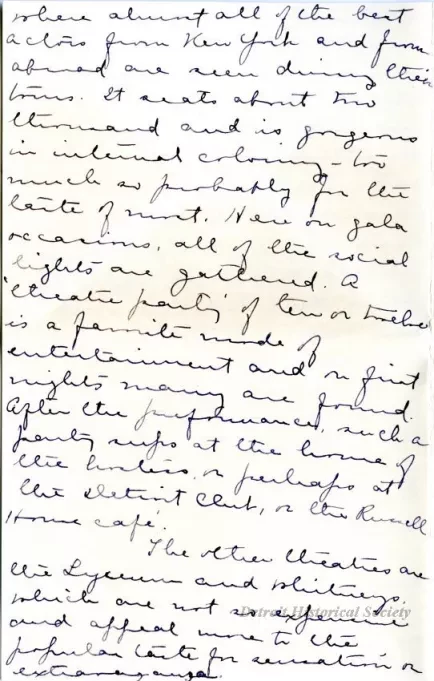 where almost all of the best
actors from New York and from
abroad are seen during their
tours. It seats about two
thousand and is gorgeous
in internal coloring - too
much so probably for the
taste of most. Here on gala
occasions, all of the social
lights are gathered. A
'theatre party' of ten or twelve
is a favorite mode of
entertainment and on first
nights many are found.
After the performance, such a
party sups at the home of
the hostess, or perhaps at
the Detroit Club, or the Russell
House café.
The other theatres are
the Lyceum and Whitneys,
which are not so expensive
Detroit Historical Society
and appeal more to the
popular taste for sensation or
extravaganza.